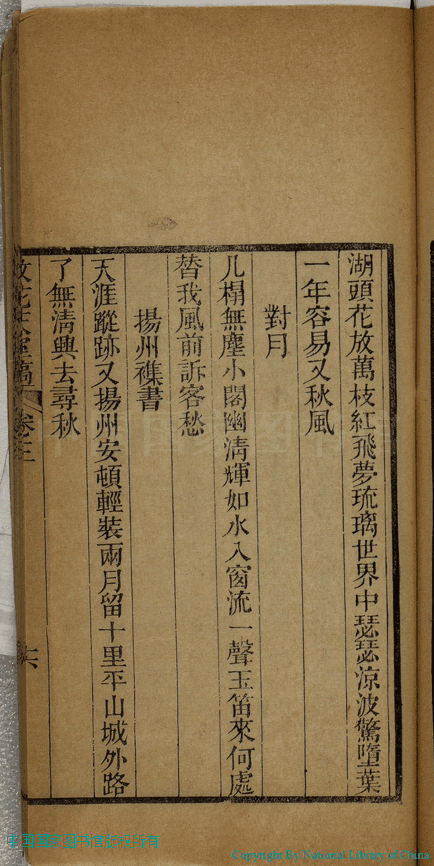 湖頭花放萬枝紅飛夢琉璃世界中瑟瑟涼波驚墮葉
一年容易又秋風
對月
几榻無塵小閣幽清輝如水入窗流一聲玉笛來何處
替我風前訴客愁
揚州襍書
天涯蹤跡又揚州安頓輕裝兩月留十里平山城外路
了無清興去尋秋
卷三
六
Copyright By National Library of China